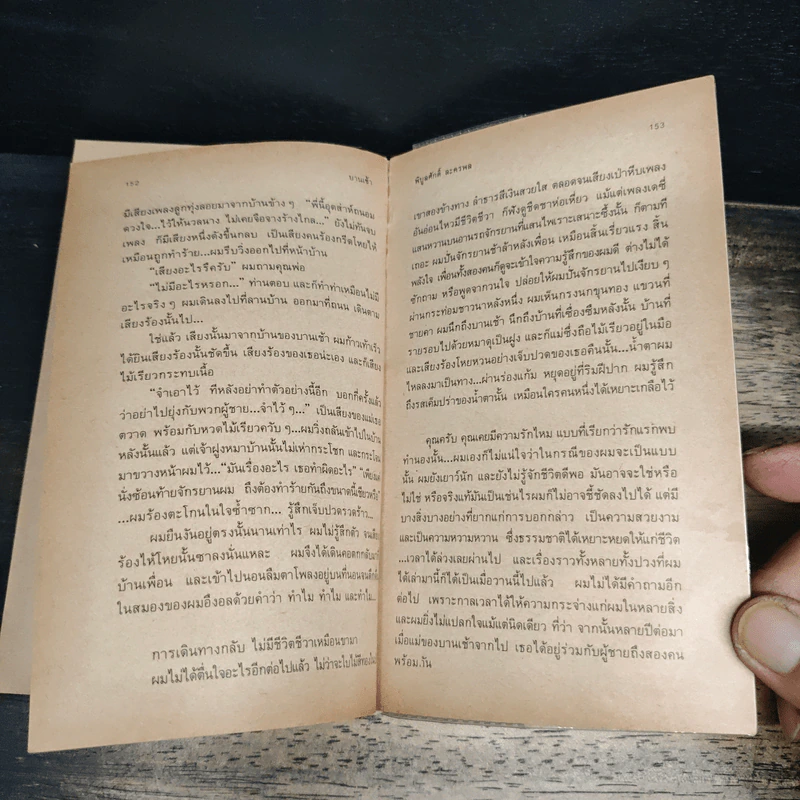 152
บานเช้า
มีเสียงเพลงลูกทุ่งลอยมาจากบ้านข้าง ๆ “พี่นี้อุตส่าห์ถนอม
ดวงใจ...ไว้ให้นวลนาง ไม่เคยจือจางร้างไกล...” ยังไม่ทันจบ
เพลง ก็มีเสียงหนึ่งดังขึ้นกลบ เป็นเสียงคนร้องกรีดโหยไห้
เหมือนถูกทำร้าย...ผมรีบวิ่งออกไปที่หน้าบ้าน
“เสียงอะไรรึครับ” ผมถามคุณพ่อ
“ไม่มีอะไรหรอก...” ท่านตอบ และก็ทำท่าเหมือนไม่มี
อะไรจริง ๆ ผมเดินลงไปที่ลานบ้าน ออกมาที่ถนน เดินตาม
เสียงร้องนั้นไป...
ใช่แล้ว เสียงนั้นมาจากบ้านของบานเช้า ผมก้าวเท้าเร็ว
ได้ยินเสียงร้องนั้นชัดขึ้น เสียงร้องของเธอน่ะเอง และก็เสียง
ไม้เรียวกระทบเนื้อ
“จำเอาไว้ ทีหลังอย่าทำตัวอย่างนี้อีก บอกกี่ครั้งแล้ว
ว่าอย่าไปยุ่งกับพวกผู้ชาย...จำไว้ ๆ...” เป็นเสียงของแม่เธอ
ตวาด พร้อมกับหวดไม้เรียวควับ ๆ...ผมวิ่งถลันเข้าไปในบ้าน
หลังนั้นแล้ว แต่เจ้าฝูงหมาบ้านนั้นไม่เห่ากระโชก และกระโจน
มาขวางหน้าผมไว้...“มันเรื่องอะไร เธอทำผิดอะไร” “เพียงแค่
นั่งซ้อนท้ายจักรยานผม ถึงต้องทำร้ายกันถึงขนาดนี้เชียวหรือ”
...ผมร้องตะโกนในใจซ้ำซาก... รู้สึกเจ็บปวดรวดร้าว...
ผมยืนงันอยู่ตรงนั้นนานเท่าไร ผมไม่รู้สึกตัว จนเสียง
ร้องไห้โหยนั้นซาลงนั่นแหละ ผมจึงได้เดินคอตกกลับมา
บ้านเพื่อน และเข้าไปนอนลืมตาโพลงอยู่บนที่นอนจนดึกดื่น
ในสมองของผมอึงอลด้วยคำว่า ทำไม ทำไม และทำไม...
การเดินทางกลับ ไม่มีชีวิตชีวาเหมือนขามา
ผมไม่ได้ตื่นใจอะไรอีกต่อไปแล้ว ไม่ว่าจะใบไม้สีทองใน
พิบูลศักดิ์ ละครพล
153
เขาสองข้างทาง ลำธารสีเงินสวยใส ตลอดจนเสียงเป่าหีบเพลง
อันอ่อนไหวมีชีวิตชีวา ก็ฟังดูซีดซาห่อเหี่ยว แม้แต่เพลงเดซี่
แสนหวานบนอานรถจักรยานที่แสนไพเราะเสนาะซึ้งนั้น ก็ตามที
เถอะ ผมปั่นจักรยานช้าล้าหลังเพื่อน เหมือนสิ้นเรี่ยวแรง สิ้น
พลังใจ เพื่อนทั้งสองคนก็ดูจะเข้าใจความรู้สึกของผมดี ต่างไม่ได้
ซักถาม หรือพูดจากวนใจ ปล่อยให้ผมปั่นจักรยานไปเงียบ ๆ
ผ่านกระท่อมชาวนาหลังหนึ่ง ผมเห็นกรงนกขุนทอง แขวนที่
ชายคา ผมนึกถึงบานเช้า นึกถึงบ้านที่เชื่องซึมหลังนั้น บ้านที่
รายรอบไปด้วยหมาดุเป็นฝูง และก็แม่ซึ่งถือไม้เรียวอยู่ในมือ
และเสียงร้องโหยหวนอย่างเจ็บปวดของเธอคืนนั้น...น้ำตาผม
ไหลลงมาเป็นทาง...ผ่านร่องแก้ม หยุดอยู่ที่ริมฝีปาก ผมรู้สึก
ถึงรสเค็มปร่าของน้ำตานั้น เหมือนใครคนหนึ่งได้เหยาะเกลือไว้
คุณครับ คุณเคยมีความรักไหม แบบที่เรียกว่ารักแรกพบ
ทำนองนั้น...ผมเองก็ไม่แน่ใจว่าในกรณีของผมจะเป็นแบบ
นั้น ผมยังเยาว์นัก และยังไม่รู้จักชีวิตดีพอ มันอาจจะใช่หรือ
ไม่ใช่ หรือจริงแท้มันเป็นเช่นไรผมก็ไม่อาจชี้ชัดลงไปได้ แต่มี
บางสิ่งบางอย่างที่ยากแก่การบอกกล่าว เป็นความสวยงาม
และเป็นความหวาน ซึ่งธรรมชาติได้เหยาะหยดให้แก่ชีวิต
...เวลาได้ล่วงเลยผ่านไป และเรื่องราวทั้งหลายทั้งปวงที่ผม
ได้เล่ามานี้ก็ได้เป็นเมื่อวานนี้ไปแล้ว ผมไม่ได้มีคำถามอีก
ต่อไป เพราะกาลเวลาได้ให้ความกระจ่างแก่ผมในหลายสิ่ง
และผมยิ่งไม่แปลกใจแม้แต่นิดเดียว ที่ว่า จากนั้นหลายปีต่อมา
เมื่อแม่ของบานเช้าจากไป เธอได้อยู่ร่วมกับผู้ชายถึงสองคน
พร้อมกัน